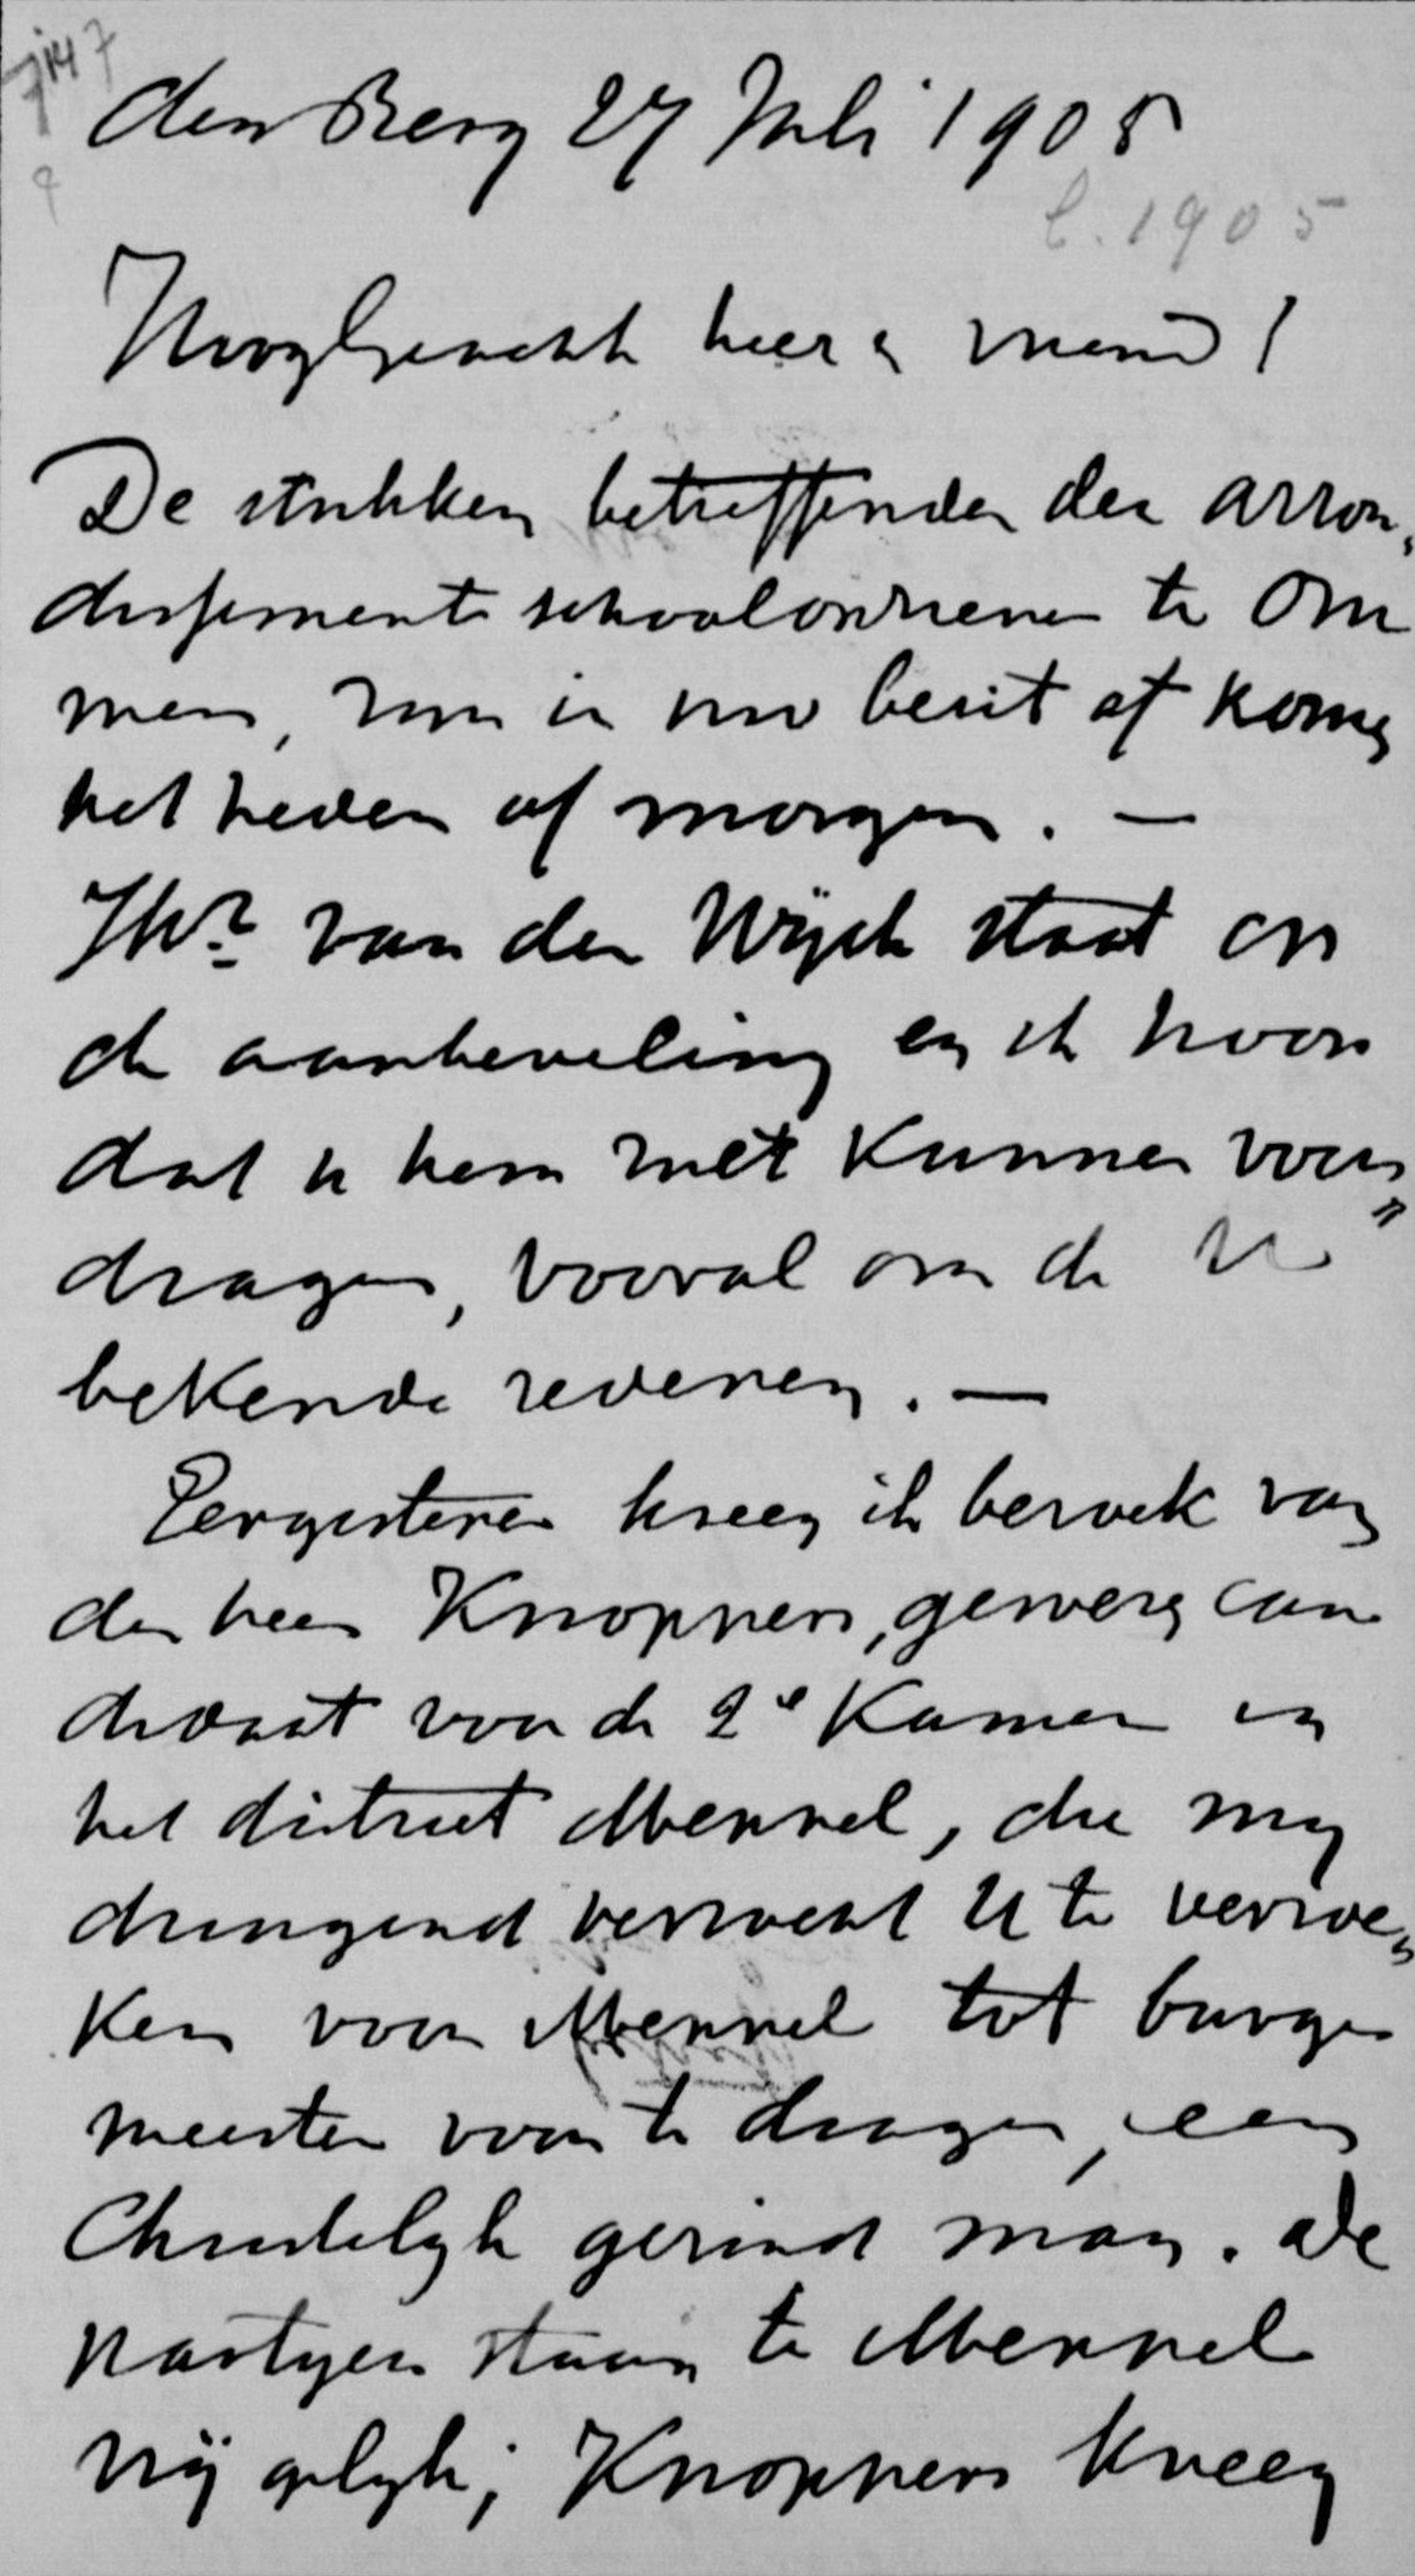 den Berg 27 Juli 1905
C. 1905
Hooggeacht heer & vriend!
De stukken betreffende den arron„
dissements schoolopziener te Om
men, zijn in uw bezit of komen
het heden of morgen. —
Jhr. van der Wijck staat op
de aanbeveling en ik hoop
dat u hem zult kunnen voor„
dragen, vooral om de U
bekende redenen. —
Eergisteren kreeg ik bezoek van
den heer Knoppers, geweze can
didaat voor de 2e Kamer in
het district Meppel, die mij
dringend verzocht U te verzoe„
ken voor Meppel tot burge
meester voor te dragen, een
Christelijk gezind man. De
partijen staan te Meppel
vrij gelijk; Knoppers kreeg